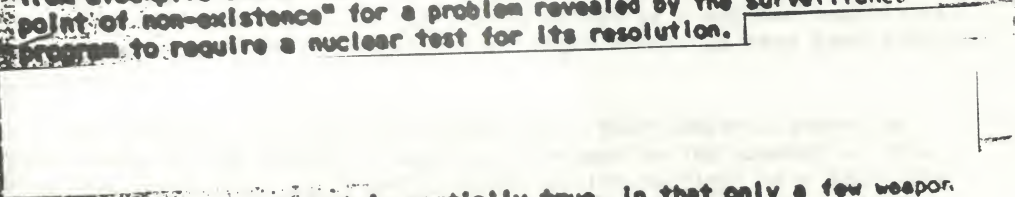 point of non-existence" for a problem revealed by the surveillance
program to require a nuclear test for its resolution.
true in that only a few weapon